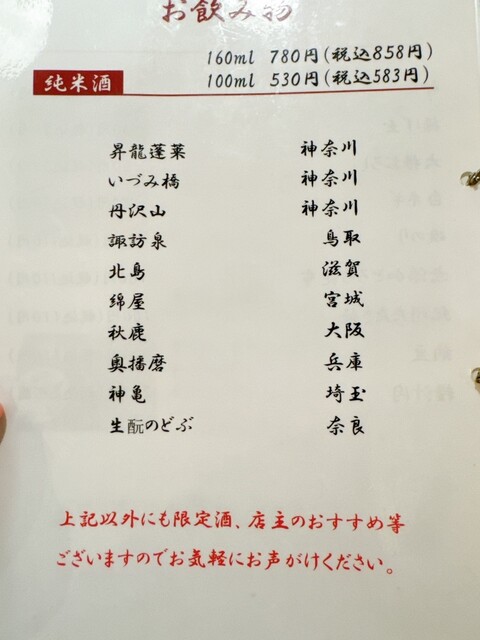 お飲み物
160ml 780円(税込858円)
純米酒 100ml 530円(税込583円)
昇龍蓬莱 神奈川
いづみ橋 神奈川
丹沢山 神奈川
諏訪泉 鳥取
北島 滋賀
綿屋 宮城
秋鹿 大阪
奥播磨 兵庫
神亀 埼玉
生酛のどぶ 奈良
上記以外にも限定酒、店主のおすすめ等
ございますのでお気軽にお声がけください。